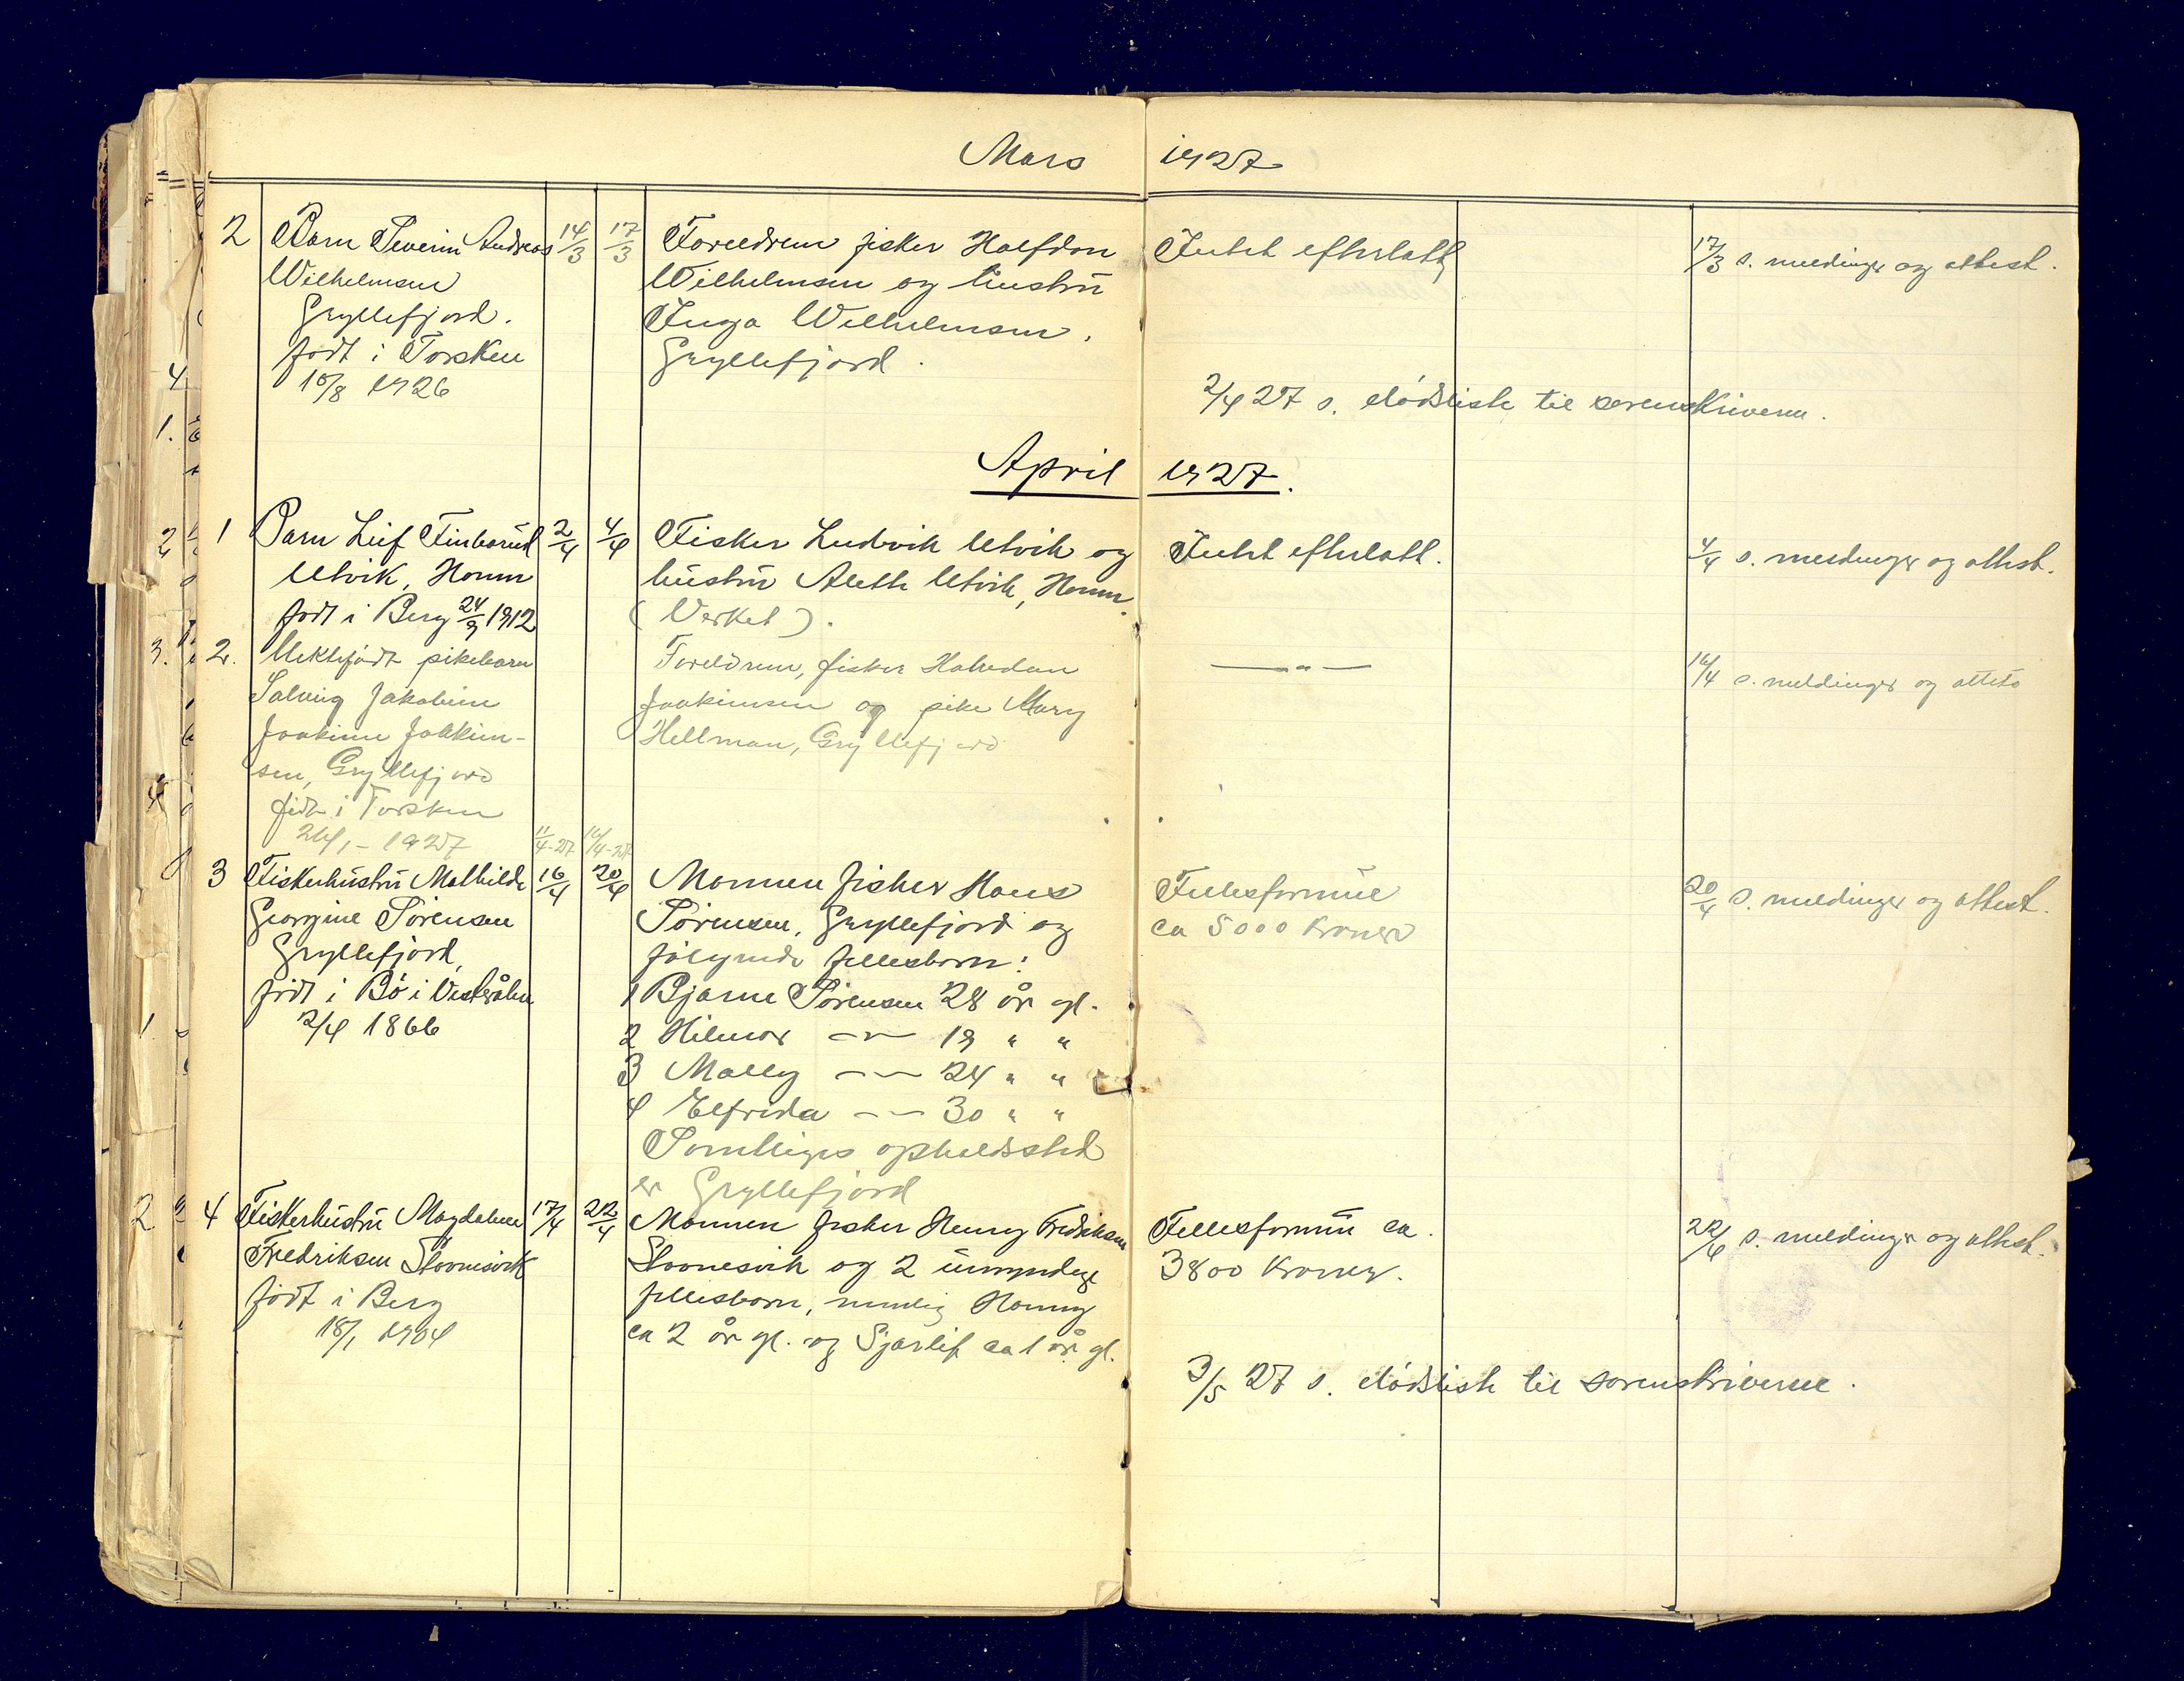 Mars 1927
2 Barn Severin Andreas 14/3 17/3 Foreldrene fisker Halfdan Intet efterlatt 17/3 s. meldinger og attest.
Wilhelmsen Wilhelmsen og hustru
Gryllefjord. Inga Wilhelmsen,
født i Torsken Gryllefjord.
15/8 1926
2/4 27 s. dødsliste til sorenskriveren.
April 1927.
1 Barn Leif Finbarud 2/4 4/4 Fisker Ludvik Utvik og Intet efterlatt. 4/4 s. meldinger og attest.
Utvik, Hamn hustru Aleth Utvik, Hamn.
født i Berg 24/9 1912 (Verket).
2. Uektefødt pikebarn Foreldrene, fisker Halvdan — " — 16/4 s. meldinger og attets
Solveig Jakobine Joakimsen og pike Mary
Joakime Joakim- Hellman, Gryllefjord
sen, Gryllefjord
født i Torsken
24/1 - 1927 11/4-27 16/4-27
3 Fiskerhustru Mathilde 16/4 20/4 Mannen fisker Hans Fellesformue 20/4 s. meldinger og attest.
Georgine Sørensen Sørensen, Gryllefjord og ca 5000 kroner
Gryllefjord, følgende fellesbarn:
født i Bø i Vesterålen 1 Bjarne Sørensen 28 år gl.
2/4 1866 2 Hilmar — " — 19 " "
3 Mally — " — 24 " "
4 Elfrida — " — 30 " "
Samtliges opholdssted
er Gryllefjord
4 Fiskerhustru Magdalene 17/4 22/4 Mannen fisker Henry Fredriksen Fellesformue ca. 22/4 s. meldinger og attest.
Fredriksen Skovnesvik Skovnesvik og 2 umyndige 3800 kroner.
født i Berg fellesbarn, nemlig Hanny
18/1 1904 ca 2 år gl. og Sjarlif ca 1 år gl.
3/5 27 s. dødsliste til sorenskriveren.